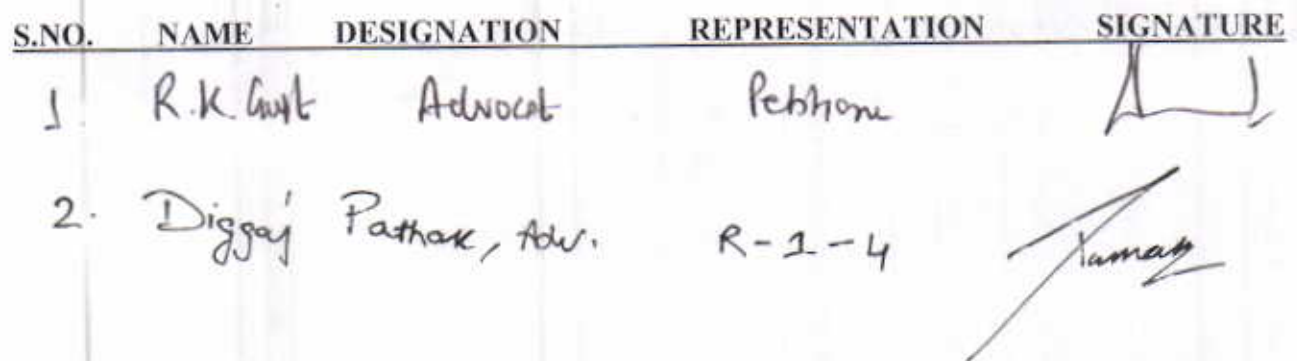 S.NO. NAME DESIGNATION REPRESENTATION SIGNATURE
1 R.K. Gupt Advocat Petitione
2. Diggaj Pathak, Adv. R-1-4